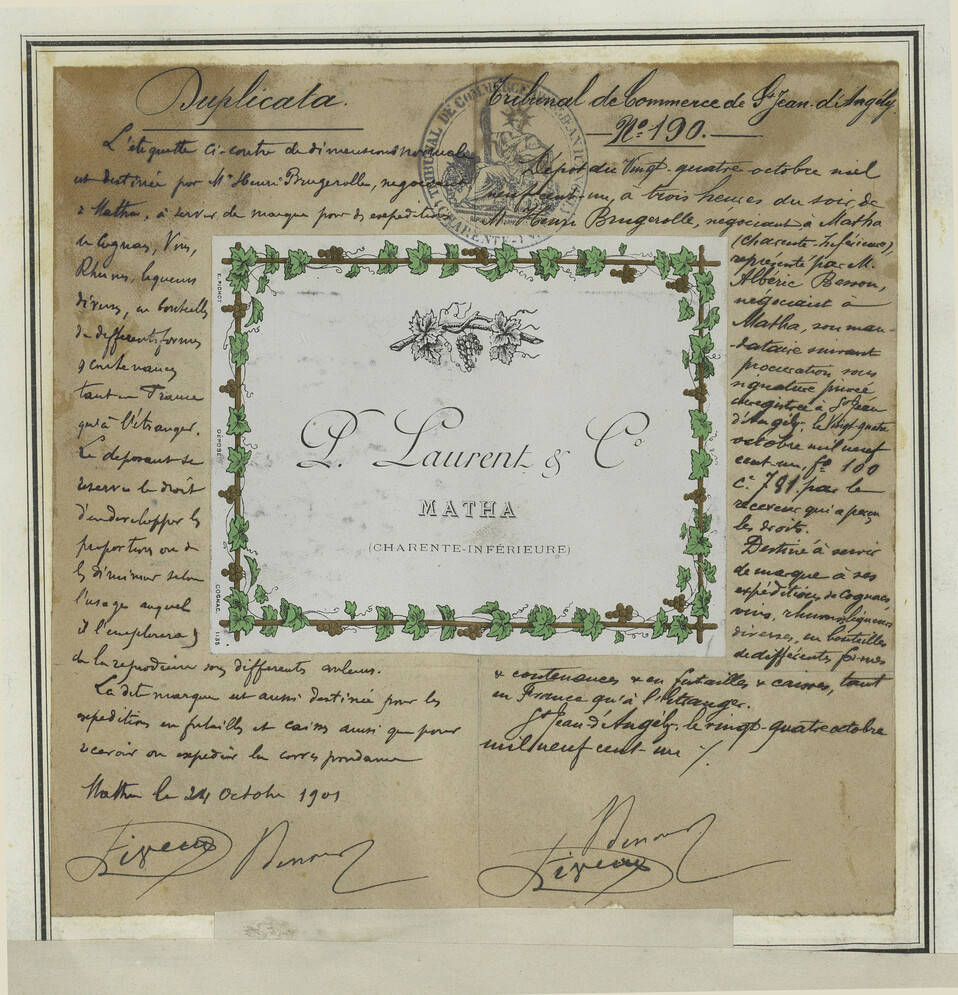 Duplicata.
L'étiquette ci-contre de dimensions normale
est destinée par Mr Henri Brugerolle, négociant
à Matha, à servir de marque pour ses expéditions
de Cognac, Vins,
Rhums, liqueurs
divers, en bouteilles
de differents formes
& contenances
tant en France
qu'à l'étranger.
Le déposant se
réserve le droit
d'en developper les
proportions ou de
les diminuer selon
l'usage auquel
il l'emploiera &
de la reproduire sous differents couleurs.
La dite marque est aussi destinée pour les
expéditions en futailles et caisses ainsi que pour
recevoir ou expédier la correspondance
Matha le 24 Octobre 1901
Besson
TRIBUNAL DE COMMERCE
(CHARENTE-INF
Tribunal de Commerce de St Jean d'Angély
No 190.
Dépot du Vingt-quatre octobre mil
neuf cent un, à trois heures du soir, de
M. Henri Brugerolle, négociant à Matha
(Charente-Inférieure),
représenté par M.
Albéric Besson,
négociant à
Matha, son man-
-dataire suivant
procuration sous
signature privée
enregistrée à St Jean
d'Angély, le vingt quatre
octobre mil neuf
cent un, fo 100
c. 791 par le
receveur qui a perçu
les droits.
Destiné à servir
de marque à ses
expéditions de Cognacs
vins, rhums, liqueurs
diverses, en bouteilles
de différentes formes
& contenances & en futailles & caisses, tant
en France qu'à l'étranger.
St Jean d'Angély, le vingt-quatre octobre
mil neuf cent un ./.
Besson
E. PICHOT
DÉPOSÉ
COGNAC. 1135
P. Laurent & Co
MATHA
(CHARENTE-INFÉRIEURE)